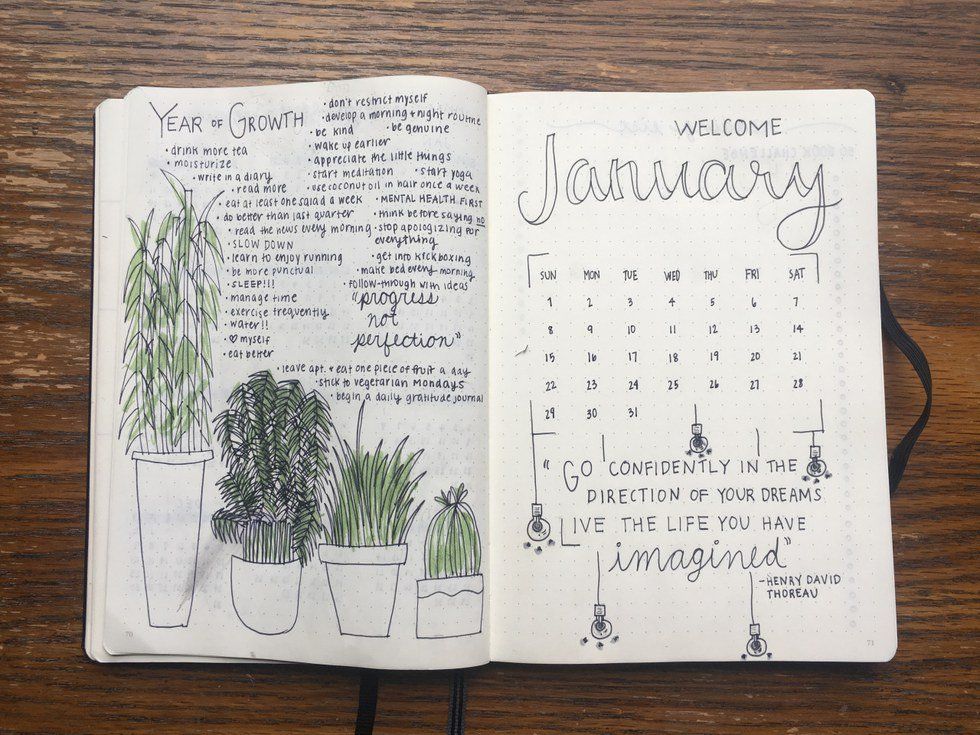 YEAR OF GROWTH
• drink more tea
• moisturize
• write in a diary
• read more
• eat at least one salad a week
• do better than last quarter
• read the news every morning
• SLOW DOWN
• learn to enjoy running
• be more punctual
• SLEEP!!!
• manage time
• exercise frequently
• water!!
• ♡ myself
• eat better
• don't restrict myself
• develop a morning + night routine
• be kind • be genuine
• wake up earlier
• appreciate the little things
• start meditation • start yoga
• use coconut oil in hair once a week
• MENTAL HEALTH FIRST
• think before saying no
• stop apologizing for
everything
• get into kickboxing
• make bed every morning
• follow-through with ideas
"progress
not
perfection"
• leave apt. + eat one piece of fruit a day
• stick to vegetarian Mondays
• begin a daily gratitude journal
70
WELCOME
January
SUN MON TUE WED THU FRI SAT
1 2 3 4 5 6 7
8 9 10 11 12 13 14
15 16 17 18 19 20 21
22 23 24 25 26 27 28
29 30 31
"GO CONFIDENTLY IN THE
DIRECTION OF YOUR DREAMS
LIVE THE LIFE YOU HAVE
imagined"
-HENRY DAVID
THOREAU
71